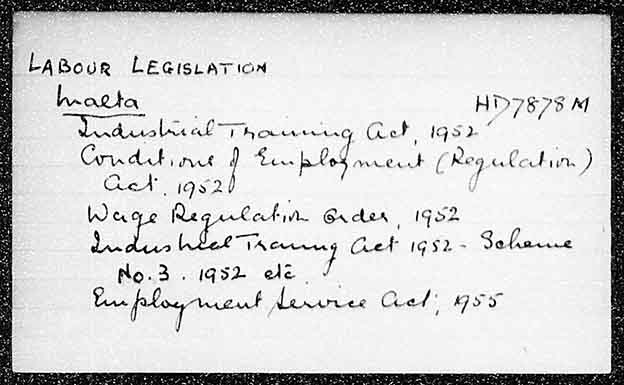 LABOUR LEGISLATION
Malta HD7878M
Industrial Training Act, 1952
Conditions of Employment (Regulation)
Act, 1952
Wage Regulation Order, 1952
Industrial Training Act 1952 - Scheme
No. 3. 1952 etc
Employment Service Act, 1955